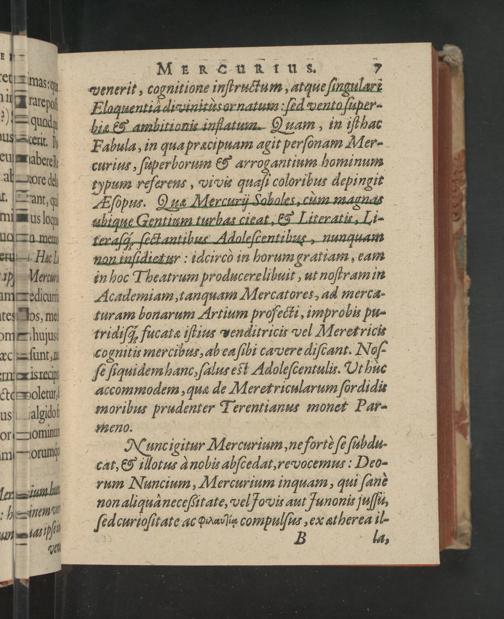 MERCURIUS. 7
venerit, cognitione instructum, atque singulari
Eloquentiâ divinitùs ornatum: sed vento super-
biæ & ambitionis inflatum. Quam, in isthac
Fabula, in qua præcipuam agit personam Mer-
curius, superborum & arrogantium hominum
typum referens, vivis quasi coloribus depingit
Æsopus. Quæ Mercurij Soboles, cum magnas
ubique Gentium turbas cieat, & Literatis, Li-
terasq; sectantibus Adolescentibus, nunquam
non insidietur: idcircò in horum gratiam, eam
in hoc Theatrum producere libuit, ut nostram in
Academiam, tanquam Mercatores, ad merca-
turam bonarum Artium profecti, improbis pu-
tridisq; fucatæ istius venditricis vel Meretricis
cognitis mercibus, ab ea sibi cavere discant. Nos-
se siquidem hanc, salus est Adolescentulis. Ut hùc
accommodem, quæ de Meretricularum sordidis
moribus prudenter Terentianus monet Par-
meno.
Nunc igitur Mercurium, ne fortè se subdu-
cat, & illotus à nobis abscedat, revocemus: Deo-
rum Nuncium, Mercurium inquam, qui sanè
non aliquâ necessitate, vel Jovis aut Junonis jussu,
sed curiositate ac φιλαυτίᾳ compulsus, ex ætherea il-
B la,